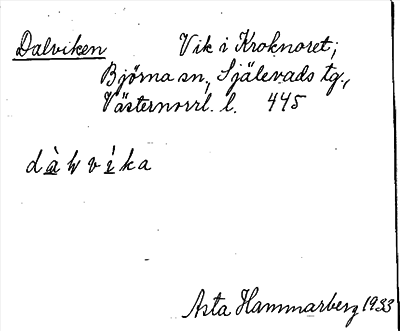 Dalviken Vik i Kroknoret;
Björna sn., Själevads tg.,
Västernorrl. l. 445
dàlvìka
Asta Hammarberg 1933